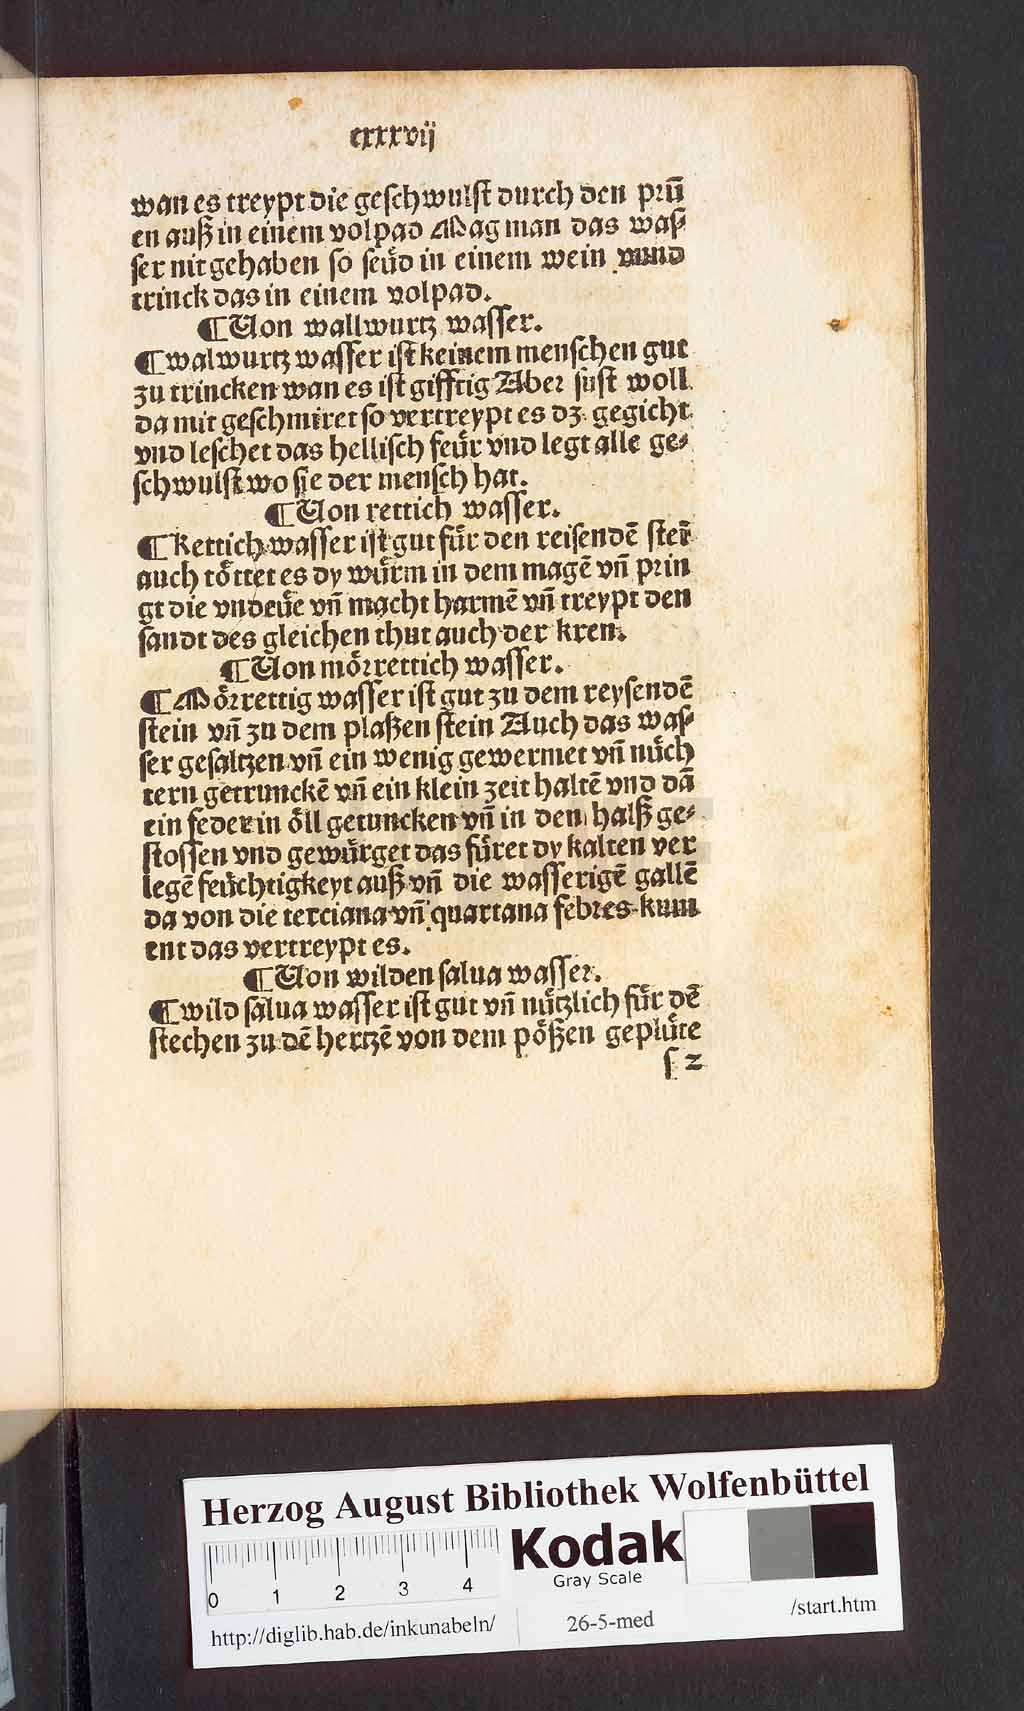 cxxxvij
wan es treypt die geschwulst durch den prū
en auß in einem volpad Mag man das was⸗
ser nit gehaben so seüd in einem wein vnnd
trinck das in einem volpad.
¶Von wallwurtz wasser.
¶walwurtz wasser ist keinem menschen gut
zu trincken wan es ist gifftig Aber sust woll
da mit geschmiret so vertreypt es dz gegicht
vnd leschet das hellisch feür vnd legt alle ge⸗
schwulst wo sie der mensch hat.
¶Von rettich wasser.
¶Rettich wasser ist gut für den reisendē stei
auch töttet es dy würm in dem magē vñ prin
gt die vndeüe vñ macht harmē vñ treypt den
sandt des gleichen thut auch der kren.
¶Von mörrettich wasser.
¶Mörrettig wasser ist gut zu dem reysendē
stein vñ zu dem plaßen stein Auch das was⸗
ser gesaltzen vñ ein wenig gewermet vñ nüch
tern getrunckē vñ ein klein zeit haltē vnd dā
ein feder in öll getuncken vñ in den halß ge⸗
stossen vnd gewürget das füret dy kalten ver
legē feüchtigkeyt auß vñ die wasserigē gallē
da von die terciana vñ quartana febres kum
ent das vertreypt es.
¶Von wilden salua wasser.
¶wild salua wasser ist gut vñ nützlich für dē
stechen zu dē hertzē von dem pößen geplüte
s 2
Herzog August Bibliothek Wolfenbüttel
Kodak
Gray Scale
0 1 2 3 4
http://diglib.hab.de/inkunabeln/
26-5-med
/start.htm